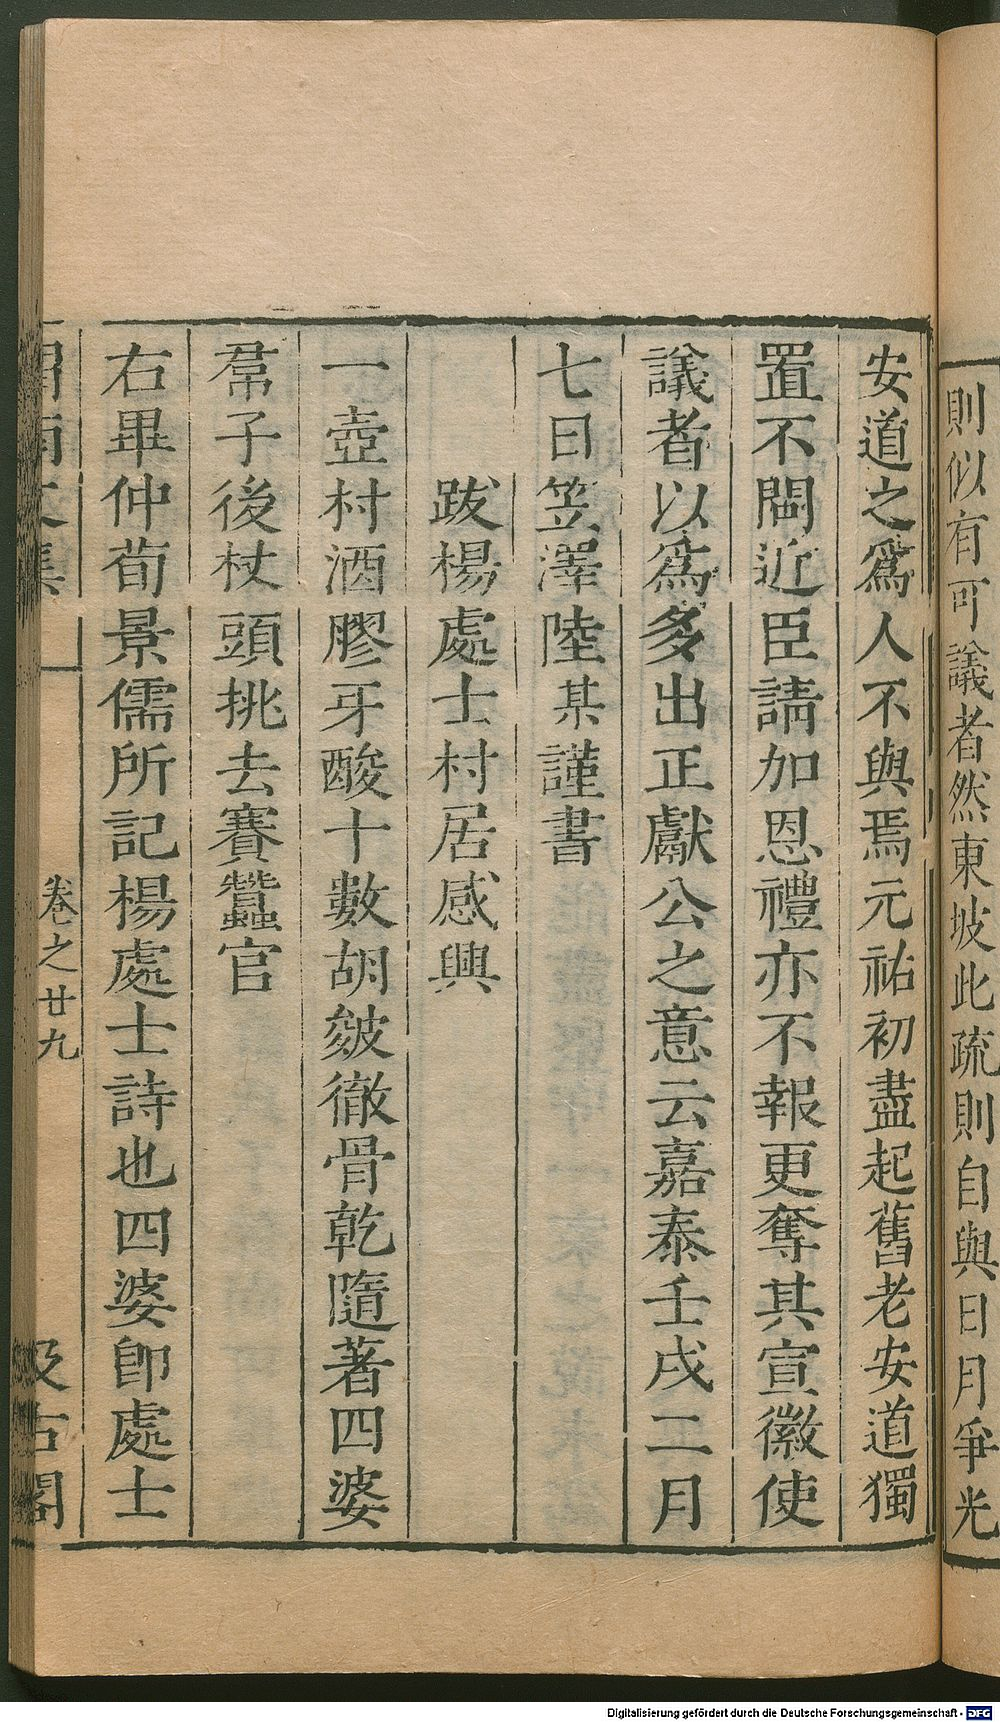 則似有可議者然東坡此疏則自與日月爭光
安道之爲人不與焉元祐初盡起舊老安道獨
置不問近臣請加恩禮亦不報更奪其宣徽使
議者以爲多出正獻公之意云嘉泰壬戌二月
七日笠澤陸某謹書
跋楊處士村居感興
一壺村酒膠牙酸十數胡皴徹骨乾隨著四婆
帬子後杖頭挑去賽蠶官
右畢仲荀景儒所記楊處士詩也四婆卽處士
渭南文集 卷之廿九 汲古閣
Digitalisierung gefördert durch die Deutsche Forschungsgemeinschaft - DFG